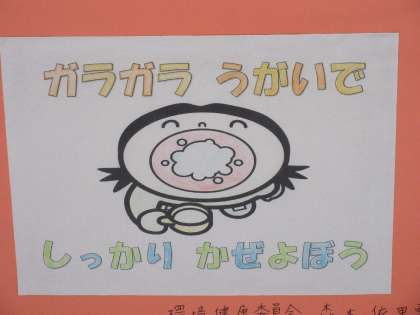 ガラガラ うがいで
しっかり かぜよぼう
環境健康委員会